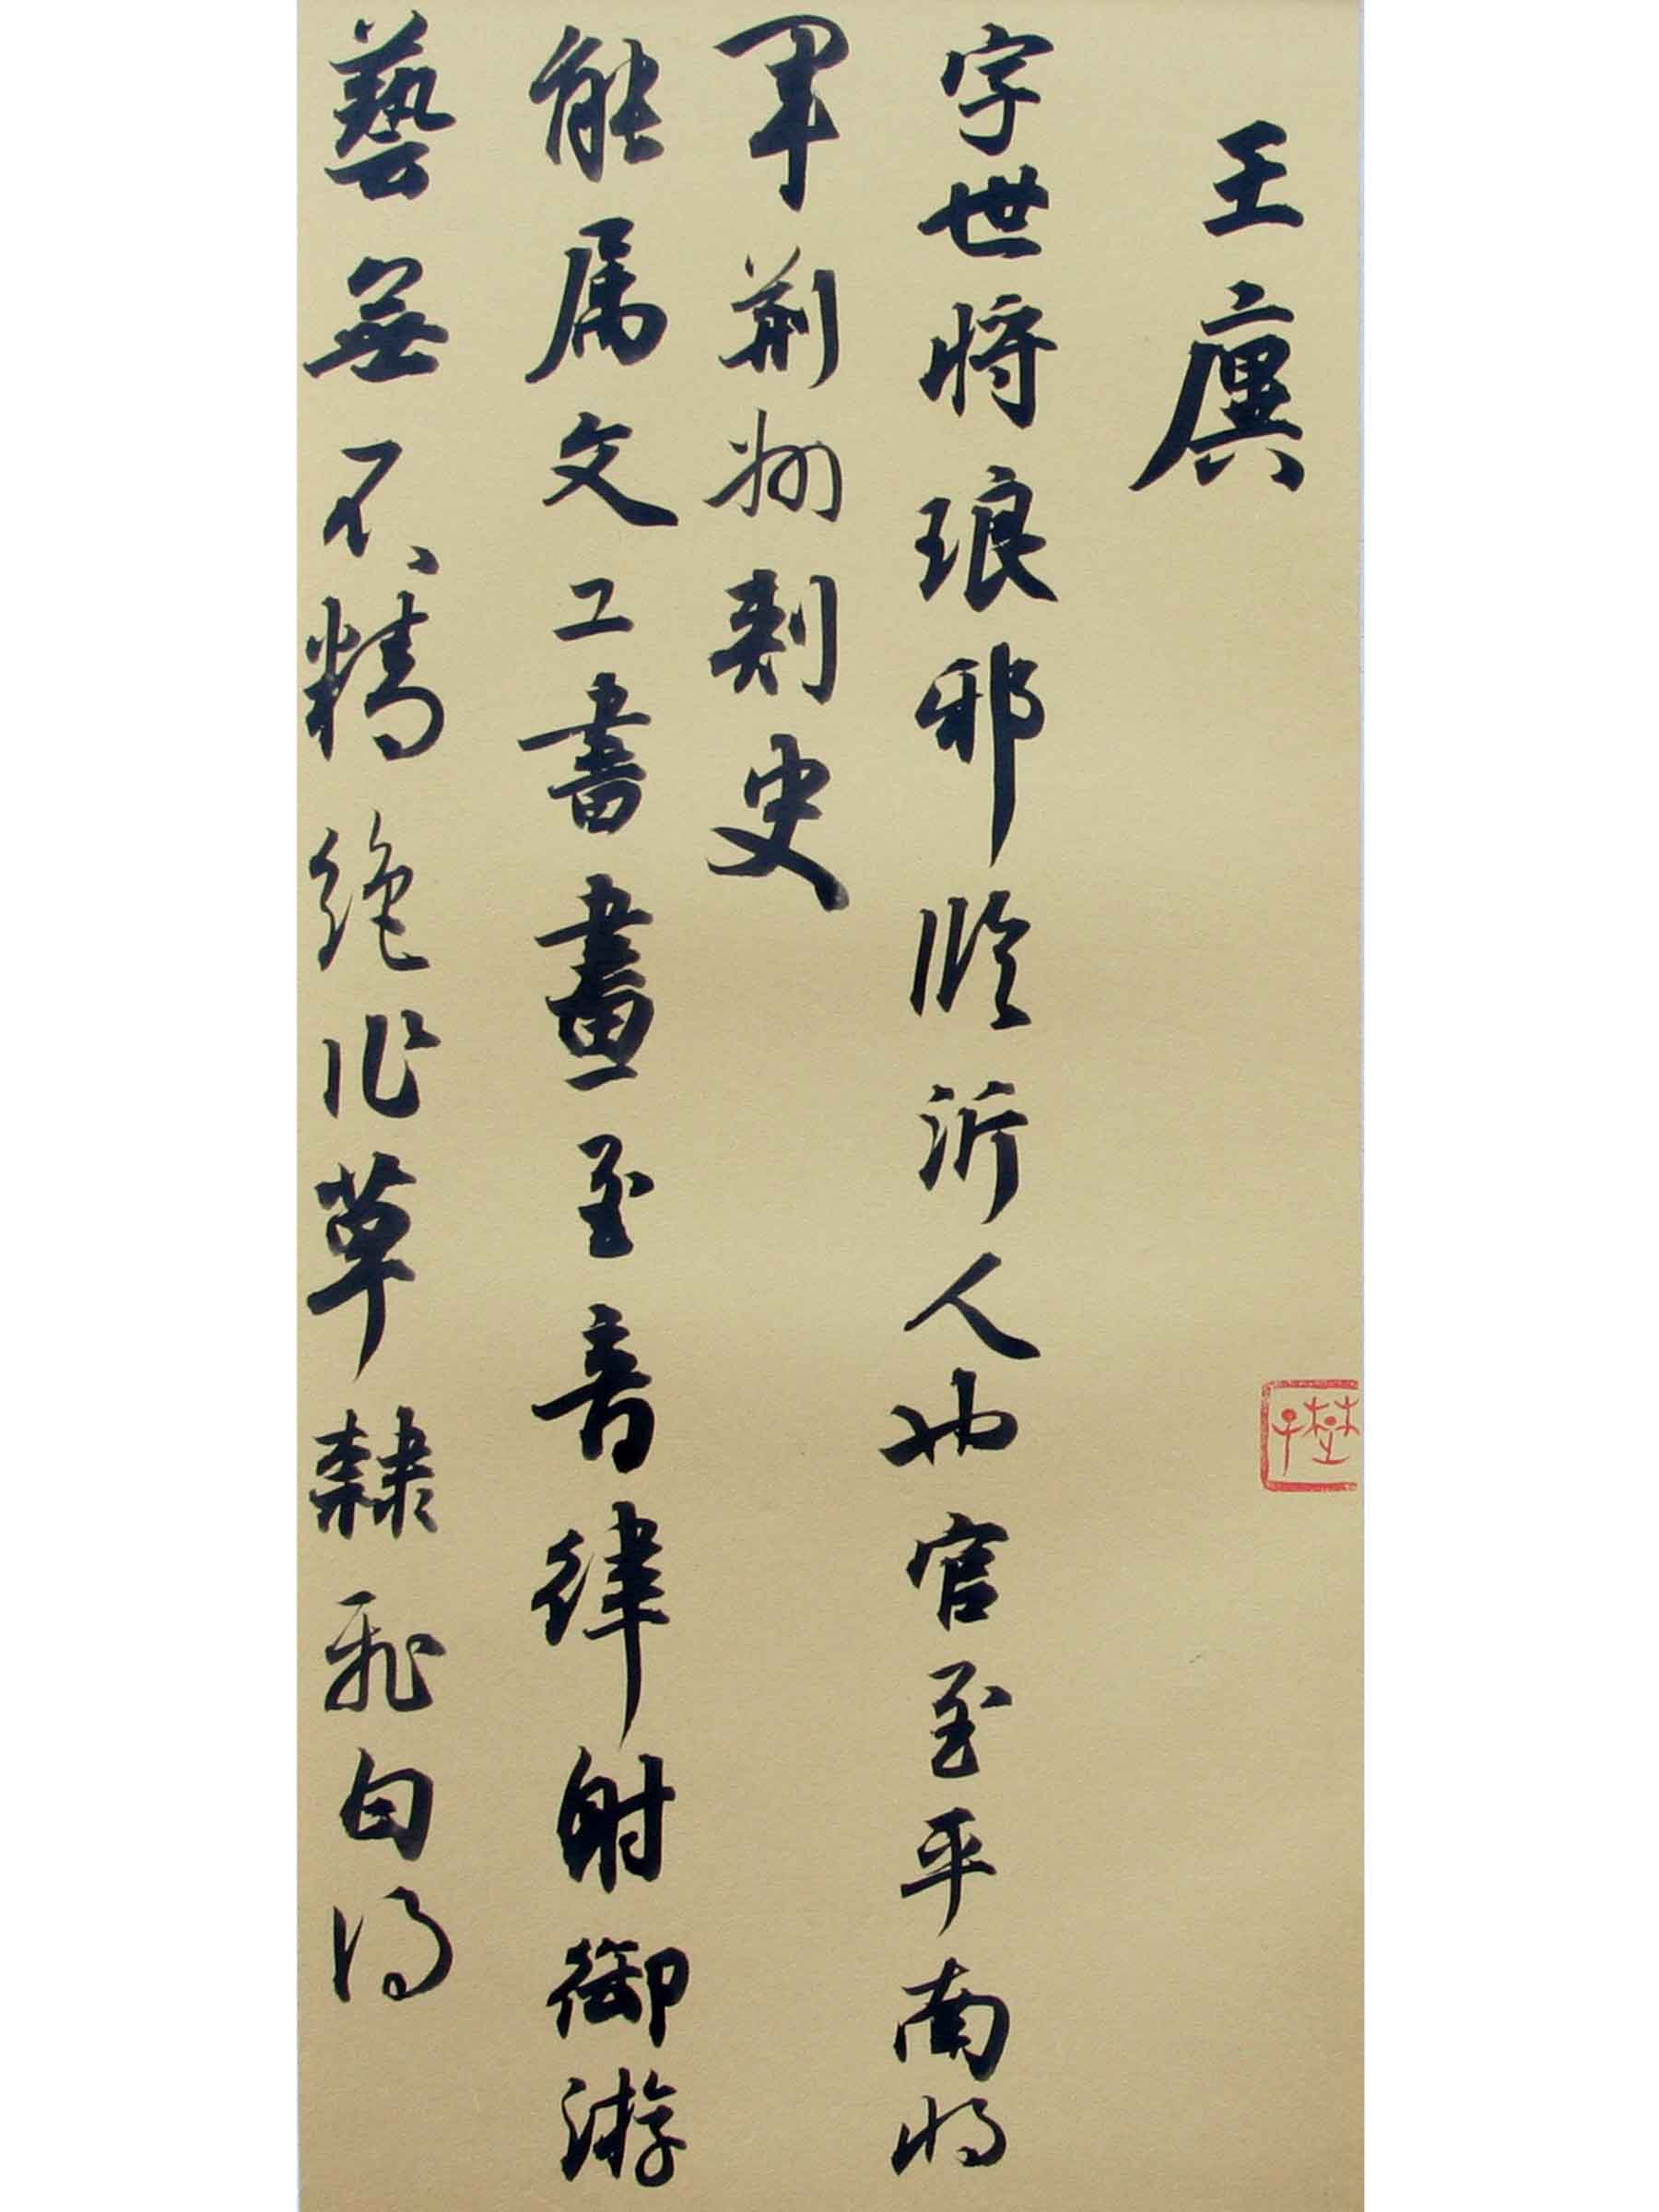 王廙
字世將琅邪临沂人也官至平南將
軍荆州刺史
能属文工書畫至音律射御游
藝無不精绝作草隸飛白得